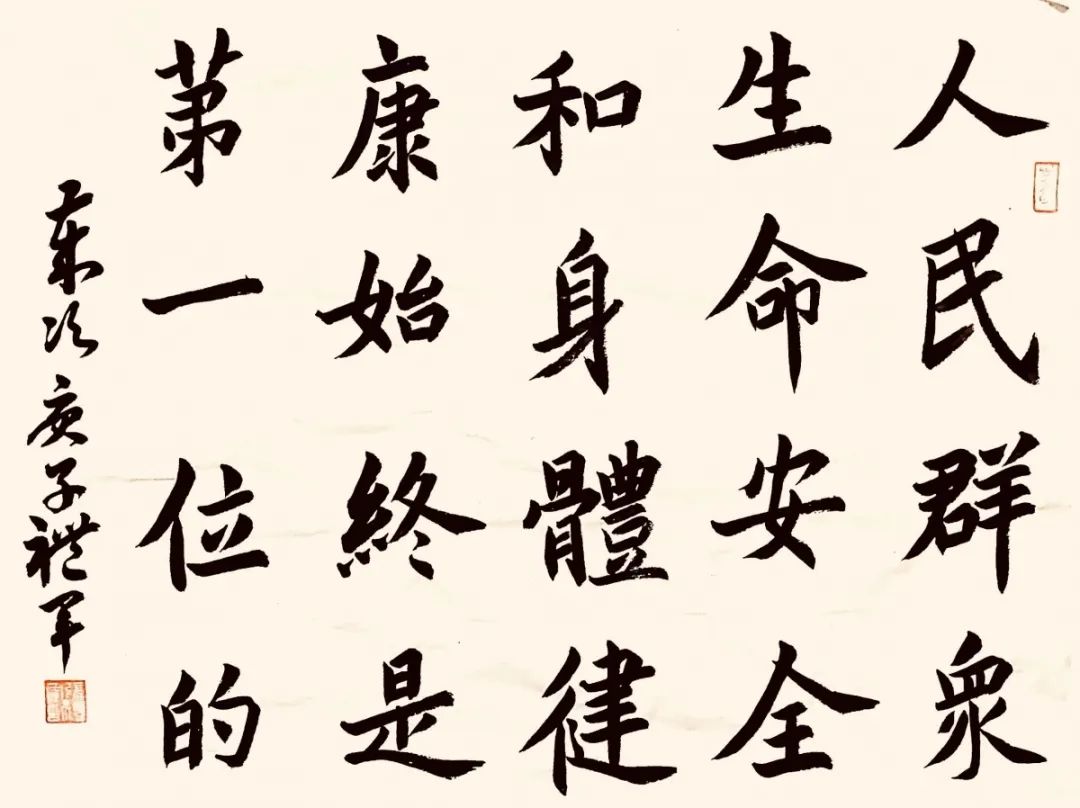 人民群衆
生命安全
和身體健
康始終是
第一位的
歲次庚子禮軍